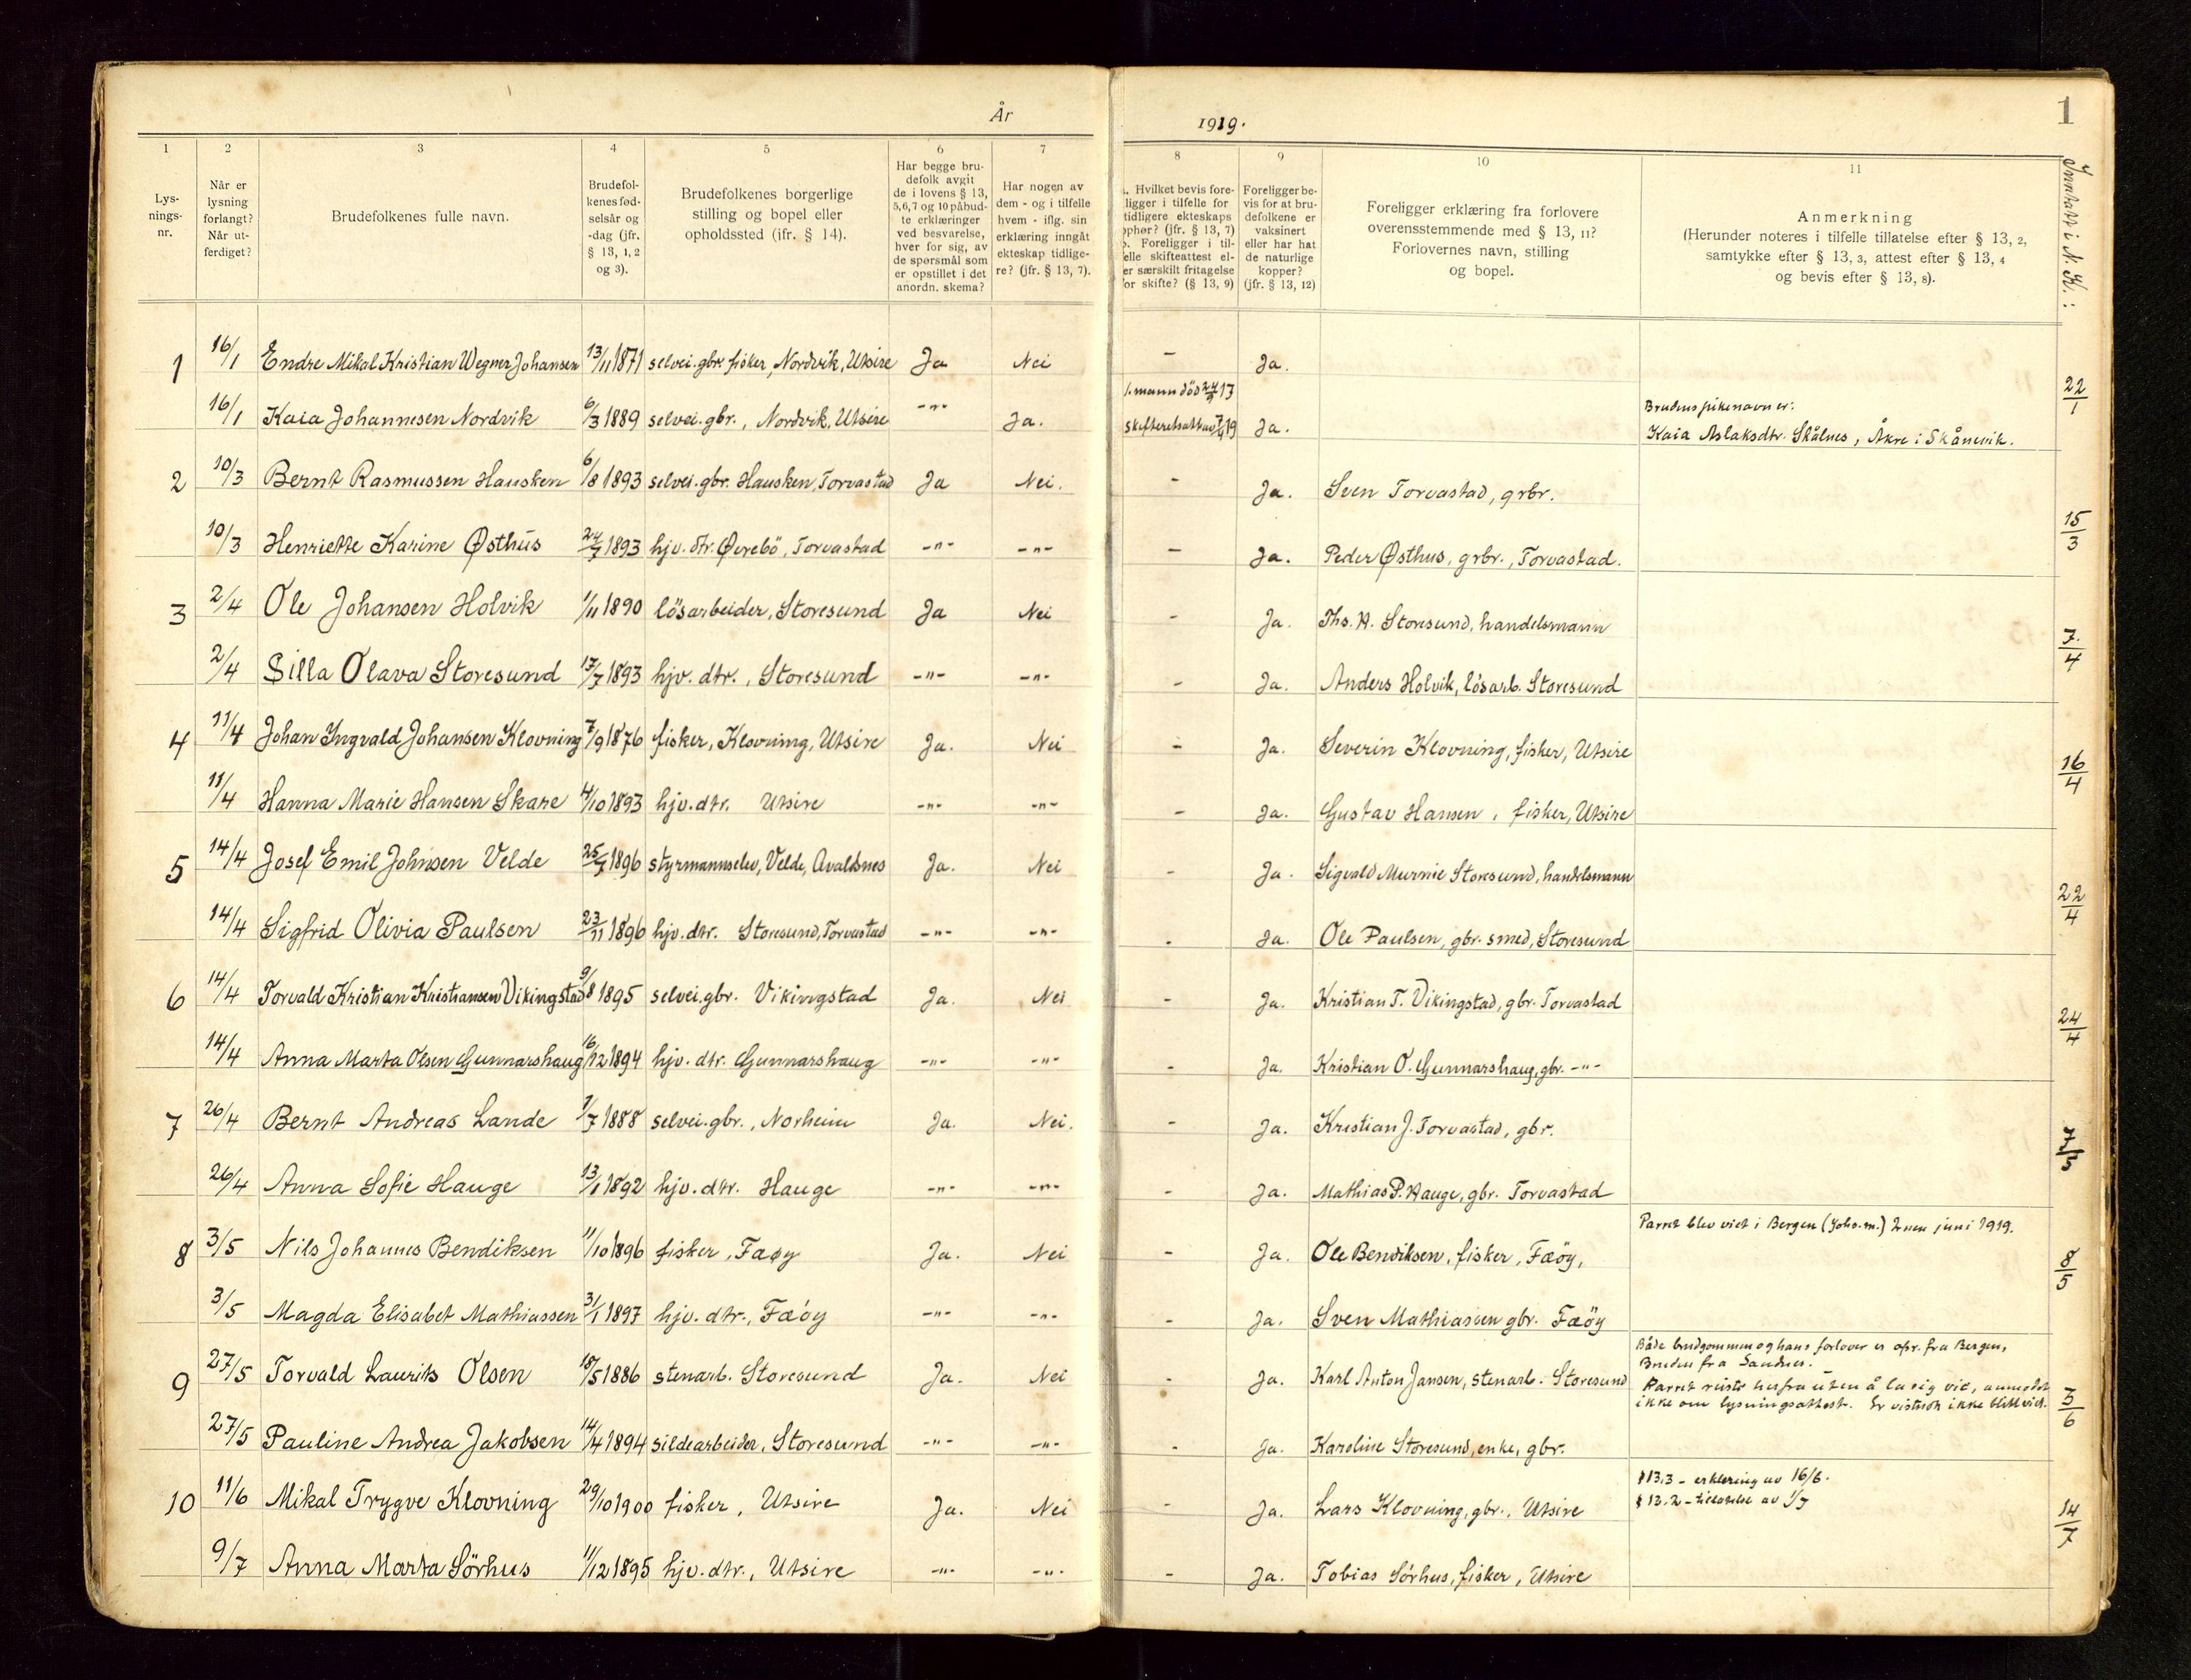 År 1919.
1
1
Lys-
nings-
nr.
2
Når er
lysning
forlangt?
Når ut-
ferdiget?
3
Brudefolkenes fulle navn.
4
Brudefol-
kenes fød-
selsår og
-dag (jfr.
§ 13, 1, 2
og 3).
5
Brudefolkenes borgerlige
stilling og bopel eller
opholdssted (ifr. § 14).
6
Har begge bru-
defolk avgit
de i lovens § 13,
5,6,7 og 10 påbud-
te erklæringer
ved besvarelse,
hver for sig, av
de spørsmål som
er opstillet i det
anordn. skema?
7
Har nogen av
dem - og i tilfelle
hvem - iflg. sin
erklæring inngåt
ekteskap tidlige-
re? (jfr. § 13, 7).
8
. Hvilket bevis fore-
ligger i tilfelle for
tidligere ekteskaps
ophør? (jfr. § 13, 7)
. Foreligger i til-
elle skifteattest el-
er særskilt fritagelse
or skifte? (§ 13, 9)
9
Foreligger be-
vis for at bru-
defolkene er
vaksinert
eller har hat
de naturlige
kopper?
(jfr. § 13, 12)
10
Foreligger erklæring fra forlovere
overensstemmende med § 13, 11?
Forlovernes navn, stilling
og bopel.
11
Anmerkning
(Herunder noteres i tilfelle tillatelse efter § 13, 2,
samtykke efter § 13, 3, attest efter § 13, 4
og bevis efter § 13, 8).
Inntatt i N. K.:
1 16/1 Endre Mikal Kristian Wegner Johansen 13/11 1871 selvei. gbr. fisker, Nordvik, Utsire Ja Nei - Ja. 22/1
16/1 Kaia Johannesen Nordvik 6/3 1889 selvei. gbr., Nordvik, Utsire -"- Ja. Ja.
Brudens pikenavn er:
Kaia Aslaksdtr. Skålnes, Åkre i Skånevik.
2 10/3 Bernt Rasmussen Hausken 6/8 1893 selvei. gbr. Hausken, Torvastad Ja Nei. - Ja. Sven Torvastad, grbr. 15/3
10/3 Henriette Karine Østhus 24/7 1893 hjv. dtr. Øvrebö, Torvastad -"- -"- - Ja. Peder Østhus, grbr., Torvastad.
3 2/4 Ole Johansen Holvik 1/11 1890 lösarbeider, Storesund Ja Nei - Ja. Ths. H. Storesund, handelsmann 7/4
2/4 Silla Olava Storesund 17/7 1893 hjv. dtr., Storesund -"- -"- - Ja. Anders Holvik, lösarb. Storesund
4 11/4 Johan Ingvald Johansen Klovning 7/9 1876 fisker, Klovning, Utsire Ja. Nei - Ja. Severin Klovning, fisker, Utsire 16/4
11/4 Hanna Marie Hansen Skare 4/10 1893 hjv. dtr. Utsire -"- -"- - Ja. Gustav Hansen, fisker, Utsire
5 14/4 Josef Emil Johnsen Velde 25/7 1896 styrmannselev, Velde, Avaldsnes Ja. Nei - Ja. Sigvald Murnie Storesund, handelsmann 22/4
14/4 Sigfrid Olivia Paulsen 23/11 1896 hjv. dtr. Storesund, Torvastad -"- -"- - Ja. Ole Paulsen, gbr. smed, Storesund
6 14/4 Torvald Kristian Kristiansen Vikingstad 9/8 1895 selvei. gbr. Vikingstad Ja. Nei - Ja. Kristian T. Vikingstad, gbr. Torvastad 24/4
14/4 Anna Marta Olsen Gunnarshaug 16/12 1894 hjv. dtr. Gunnarshaug -"- -"- - Ja. Kristian O. Gunnarshaug, gbr. -"-
7 26/4 Bernt Andreas Lande 1/7 1888 selvei. gbr., Norheim Ja. Nei. - Ja. Kristian J. Torvastad, gbr. 7/5
26/4 Anna Sofie Hauge 13/1 1892 hjv. dtr. Hauge -"- -"- - Ja. Mathias P. Hauge, gbr. Torvastad
8 3/5 Nils Johannes Bendiksen 11/10 1896 fisker, Faøy Ja. Nei - Ja. Ole Bendiksen, fisker, Fæöy, 8/5
Parret blev viet i Bergen (Johs. m.) 2nen juni 1919.
3/5 Magda Elisabet Mathiassen 31/1 1897 hjv. dtr., Fæöy -"- -"- - Ja. Sven Mathiassen gbr. Fæöy
9 27/5 Torvald Laurits Olsen 18/5 1886 stenarb. Storesund Ja. Nei - Ja. Karl Anton Jansen, stenarb. Storesund 3/6
Både brudgommen og hans forlover er opr. fra Bergen,
Bruden fra Sandnes.
Parret reiste herfra uten å la sig vie, anmodet
ikke om lysningsattest. Er visstnok ikke blitt viet.
27/5 Pauline Andrea Jakobsen 14/4 1894 sildearbeider, Storesund -"- -"- - Ja. Karoline Storesund, enke, gbr.
10 11/6 Mikal Trygve Klovning 29/10 1900 fisker, Utsire Ja. Nei - Ja. Lars Klovning, gbr., Utsire 14/7
§ 13.3 - erklæring av 16/6.
§ 13.2 - tillatelse av 1/7
9/7 Anna Marta Sörhus 11/12 1895 hjv. dtr., Utsire -"- -"- - Ja. Tobias Sörhus, fisker, Utsire